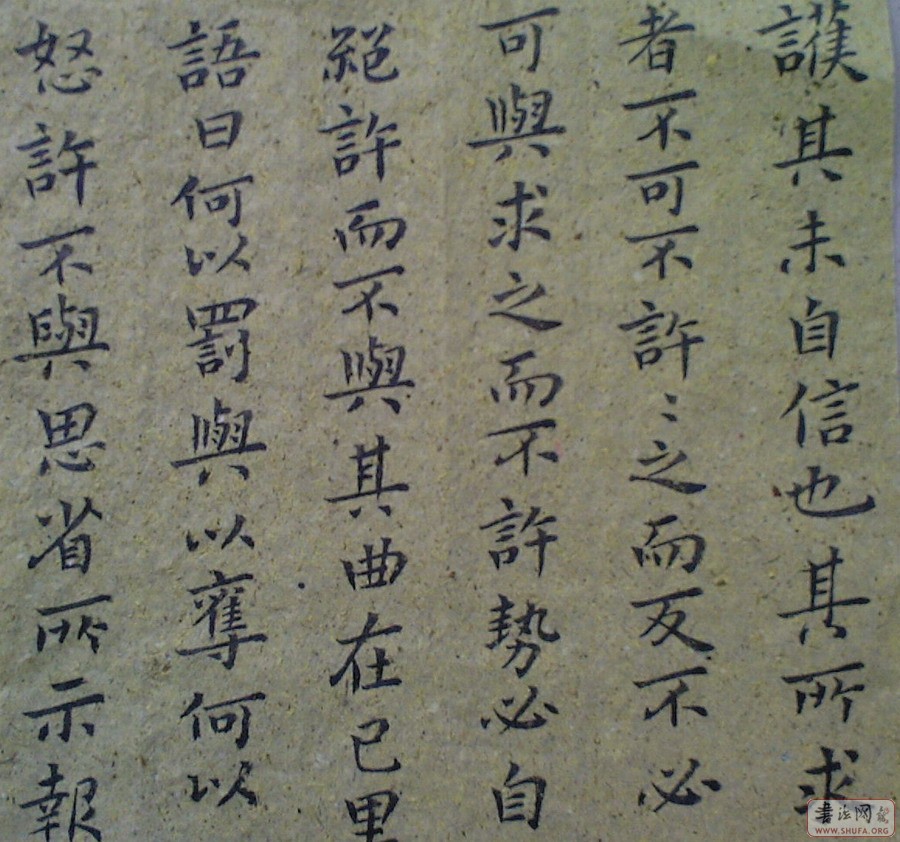 護其未自信也其所求
者不可不許〻之而反不必
可與求之而不許勢必自
絕許而不與其曲在已里
語曰何以罰與以奪何以
怒許不與思省所示報
書法网
WWW.SHUFA.ORG